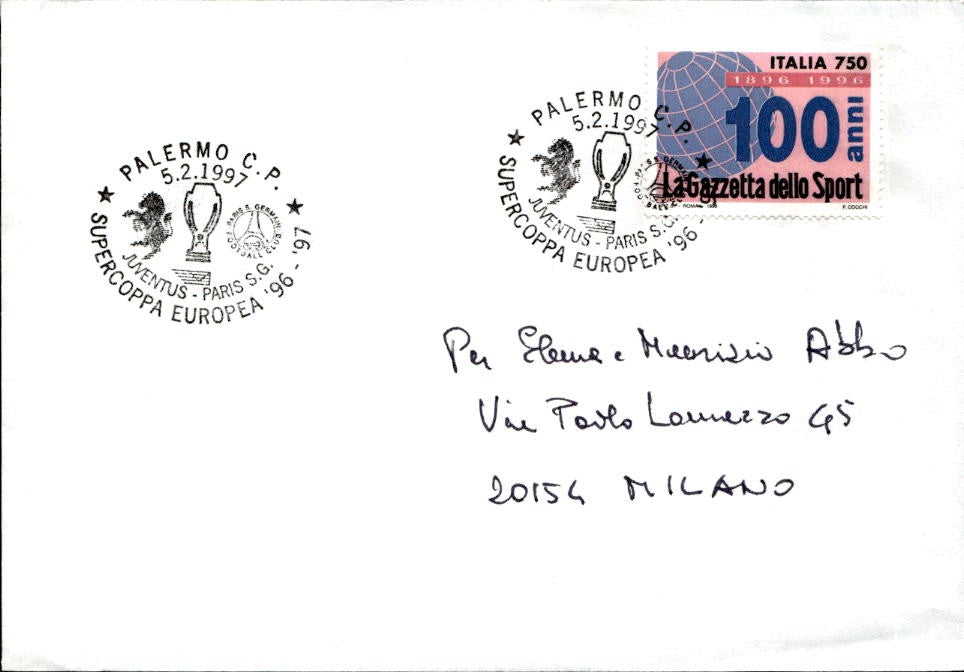 PALERMO C.P.
5.2.1997
PARIS S. GERMAIN
FOOTBALL CLUB
JUVENTUS - PARIS S.G.
SUPERCOPPA EUROPEA '96 - '97
PALERMO C.P.
5.2.1997
PARIS S. GERMAIN
FOOTBALL CLUB
JUVENTUS - PARIS S.G.
SUPERCOPPA EUROPEA '96 - '97
ITALIA 750
1896 1996
100 anni
La Gazzetta dello Sport
ROMA F. COCCHI
Per Elena e Maurizio Abbo
Via Paolo Lomazzo 45
20154 MILANO